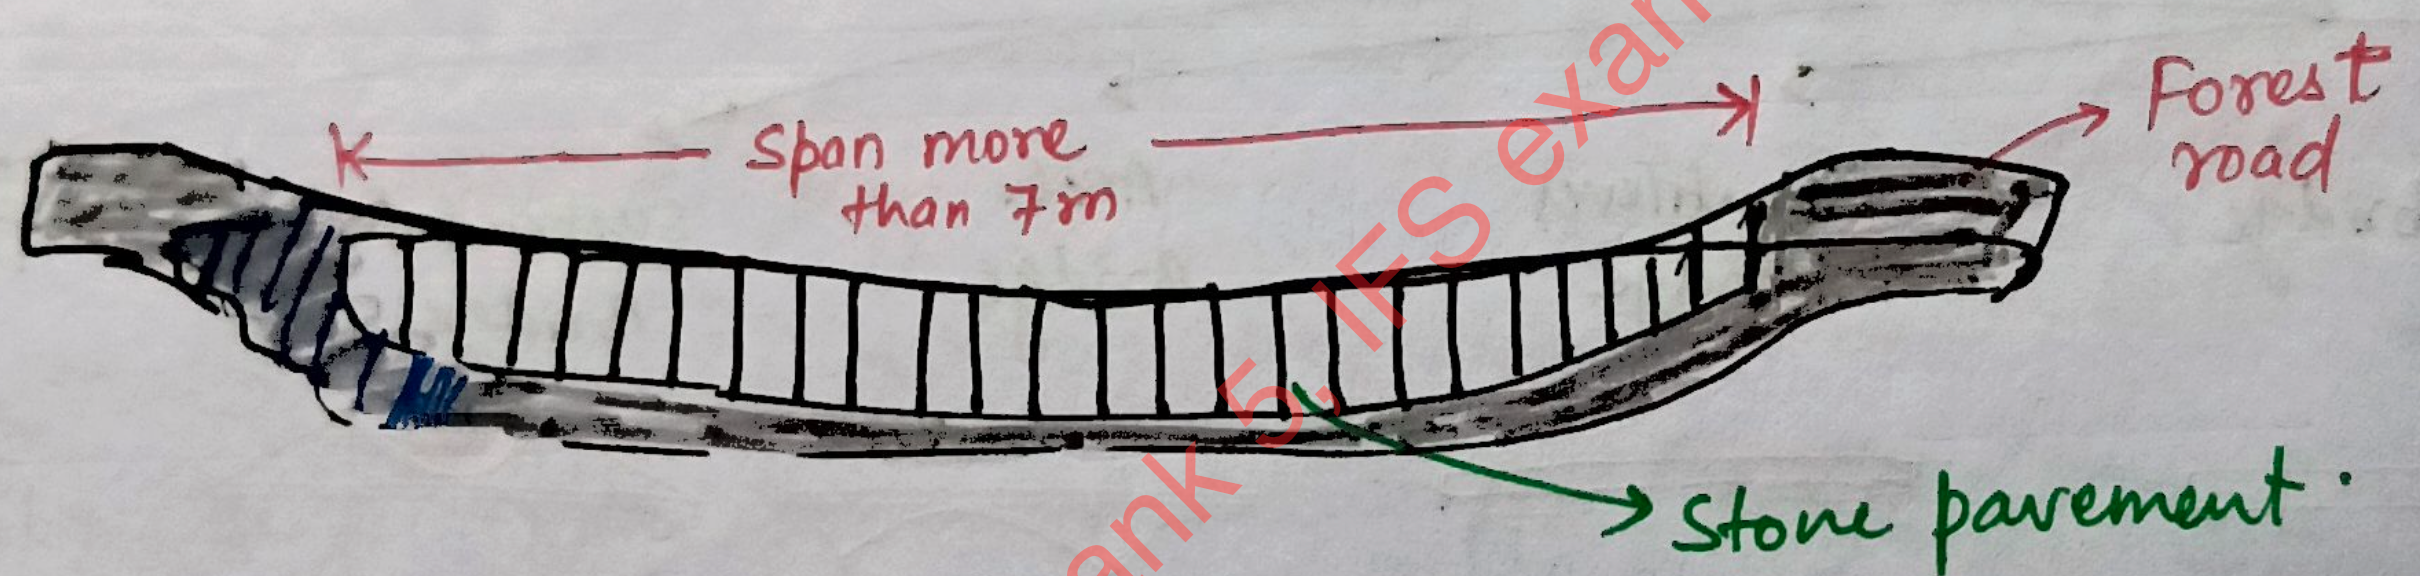 Span more
than 7m
Forest
road
Stone pavement.
ank 5, IFS exam